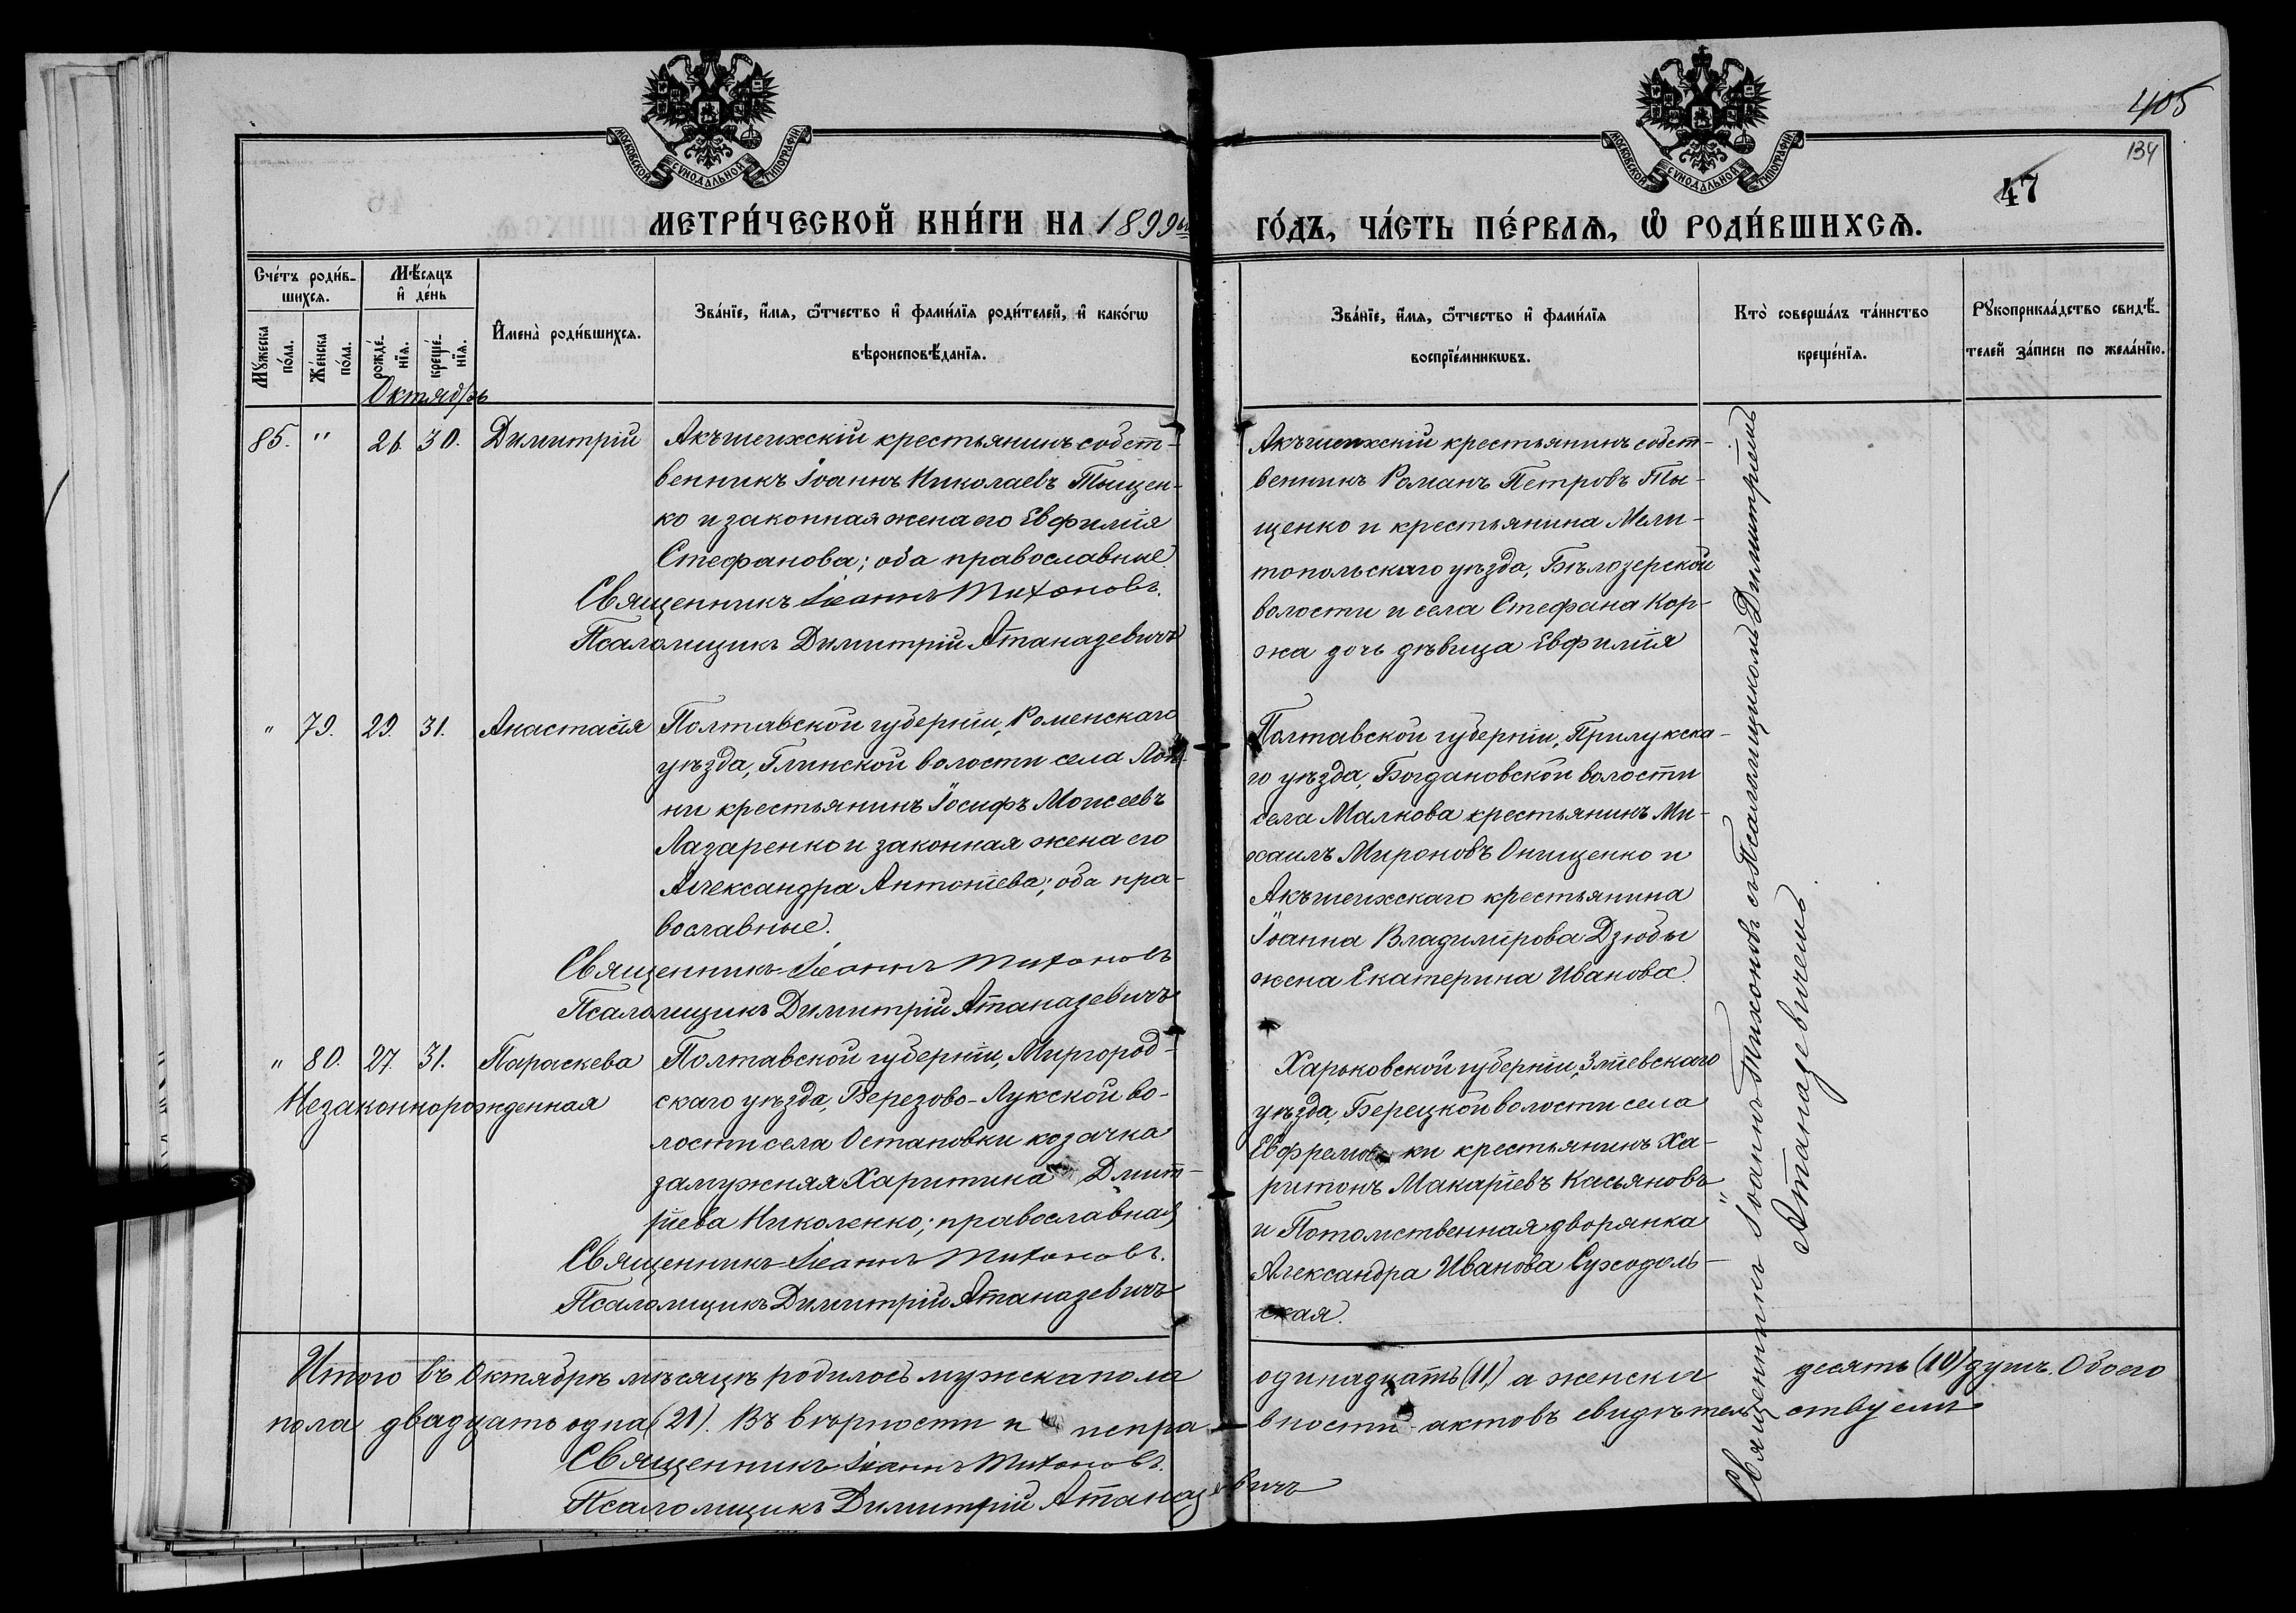 405
134
47
МОСКОВСКОЙ СѴНОДАЛЬНОЙ ТИПОГРАФІИ
МОСКОВСКОЙ СѴНОДАЛЬНОЙ ТИПОГРАФІИ
МЕТРИ́ЧЕСКОЙ КНИ́ГИ НА 1899ый ГО́ДЪ, ЧА́СТЬ ПЕ́РВАѦ, Ѡ҆ РОДИ́ВШИХСѦ.
Сче́тъ роди́в-
шихсѧ.
Мꙋ́жеска по́ла.
Же́нска по́ла.
Мѣ́сѧцъ
и҆ де́нь
рожде́-нїѧ.
креще́-нїѧ.
И҆мена̀ роди́вшихсѧ.
Зва́нїе, и҆́мѧ, ѻ҆́тчество и҆ фами́лїѧ роди́телей, и҆ како́гѡ
вѣроисповѣ́данїѧ.
Зва́нїе, и҆́мѧ, ѻ҆́тчество и҆ фами́лїѧ
воспрїе́мникѡвъ.
Кто̀ соверша́лъ та́инство
креще́нїѧ.
Рꙋкоприкла́дство свидѣ́-
телей за́писи по жела́нїю.
Октябрь
85. " 26. 30. Димитрій
Акъшеихскій крестьянинъ собст-
венникъ Іоаннъ Николаевъ Тыщен-
ко и законная жена его Евфимія
Стефанова; оба православные
Священникъ Іоаннъ Тихоновъ.
Псаломщикъ Димитрій Атаназевичъ
Акъшеихскій крестьянинъ собст-
венникъ Романъ Петровъ Ты-
щенко и крестьянина Мели-
топольскаго уѣзда, Бѣлозерской
волости и села Стефана Кор-
жа дочь дѣвица Евфимія
" 79. 29. 31. Анастасія
Полтавской губерніи, Роменскаго
уѣзда, Глинской волости села
ни крестьянинъ Іосифъ Моисеевъ
Лазаренко и законная жена его
Александра Антоніева; оба пра-
вославные.
Священникъ Іоаннъ Тихоновъ
Псаломщикъ Димитрій Атаназевичъ
Полтавской губерніи, Прилукска-
го уѣзда, Богдановской волости
села Малкова крестьянинъ Ми-
хаилъ Мироновъ Онищенко и
Акъшеихскаго крестьянина
Іоанна Владимірова Дзюбы
жена Екатерина Иванова.
" 80. 27. 31. Параскева
Незаконнорожденная
Полтавской губерніи, Миргород-
скаго уѣзда, Березово-Лукской во-
лости села Остановки козачка
замужняя Харитина Дмит-
ріева Николенко; православная
Священникъ Іоаннъ Тихоновъ.
Псаломщикъ Димитрій Атаназевичъ
Харьковской губерніи, Зміевскаго
уѣзда, Берецкой волости села
Евфремовки крестьянинъ Ха-
ритонъ Макаріевъ Касьяновъ
и Потомственная дворянка
Александра Иванова Суходоль-
ская.
Священникъ Іоаннъ Тихоновъ съ Псаломщикомъ Димитріемъ
Атаназевичемъ
Итого въ Октябрѣ мѣсяцѣ родилось мужска пола одинадцать (11) а женска десять (10) душъ. Обоего
пола двадцать одна (21). Въ вѣрности и исправности актовъ свидѣтельствуемъ
Священникъ Іоаннъ Тихоновъ.
Псаломщикъ Димитрій Атаназевичъ